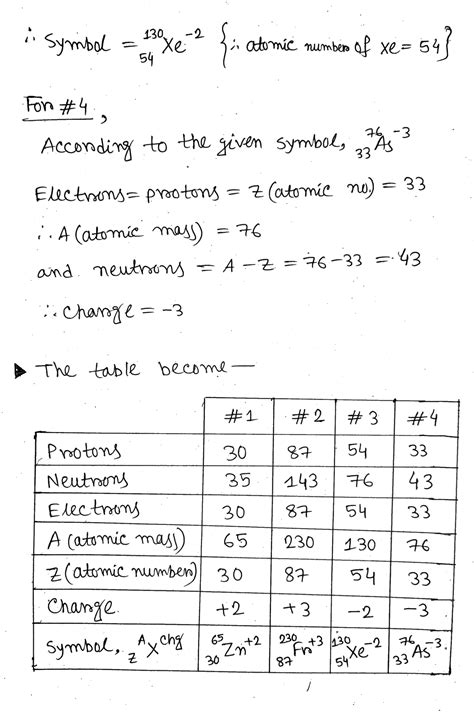 ∴ Symbol = ¹³⁰₅₄Xe⁻² {∵ atomic number of xe = 54}
For #4,
According to the given symbol, ⁷⁶₃₃As⁻³
Electrons = protons = Z (atomic no.) = 33
∴ A (atomic mass) = 76
and neutrons = A – Z = 76 – 33 = 43
∴ Charge = –3
▶ The table become —
#1 #2 #3 #4
Protons 30 87 54 33
Neutrons 35 143 76 43
Electrons 30 87 54 33
A (atomic mass) 65 230 130 76
Z (atomic number) 30 87 54 33
Charge +2 +3 –2 –3
Symbol, ᴬ_Z X^chg ⁶⁵₃₀Zn⁺² ²³⁰₈₇Fr⁺³ ¹³⁰₅₄Xe⁻² ⁷⁶₃₃As⁻³